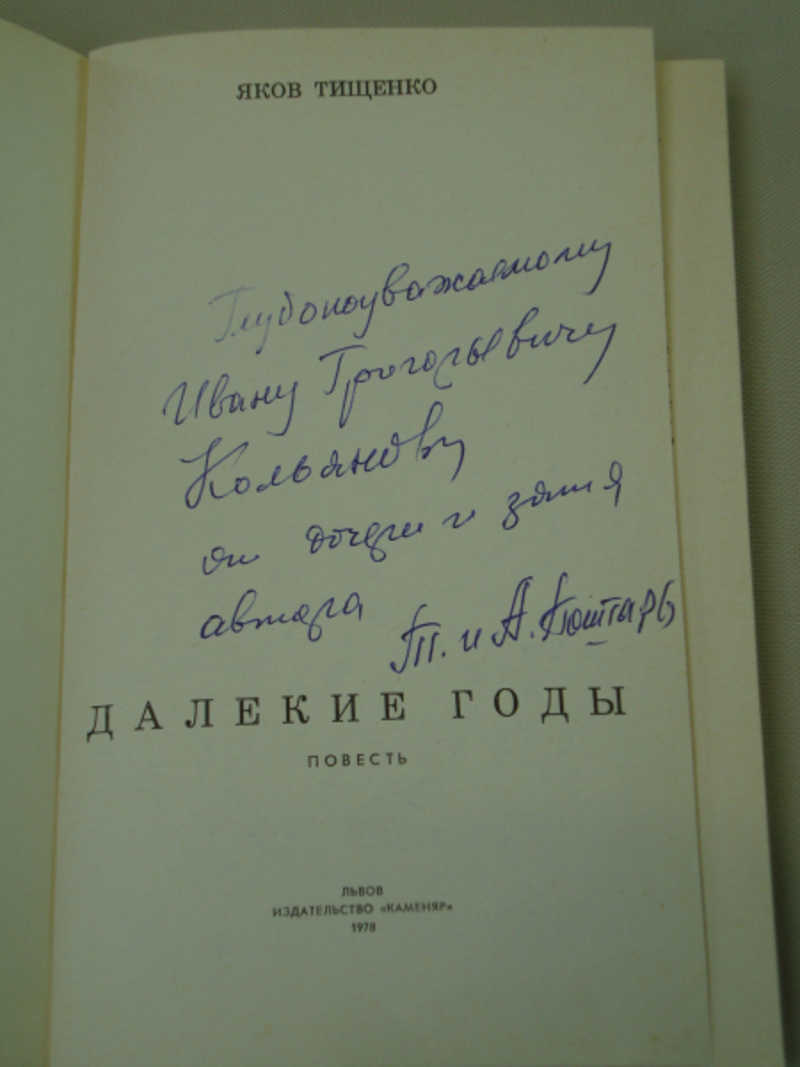 ЯКОВ ТИЩЕНКО
Глубокоуважаемому
Ивану Григорьевичу
Кольянову
от дочери и зятя
автора Т. и А.
ДАЛЕКИЕ ГОДЫ
ПОВЕСТЬ
ЛЬВОВ
ИЗДАТЕЛЬСТВО «КАМЕНЯР»
1978